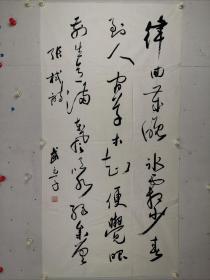 律回岁晚冰霜少春
到人间草木知便觉眼
前生意满东风吹水绿参差
张栻诗